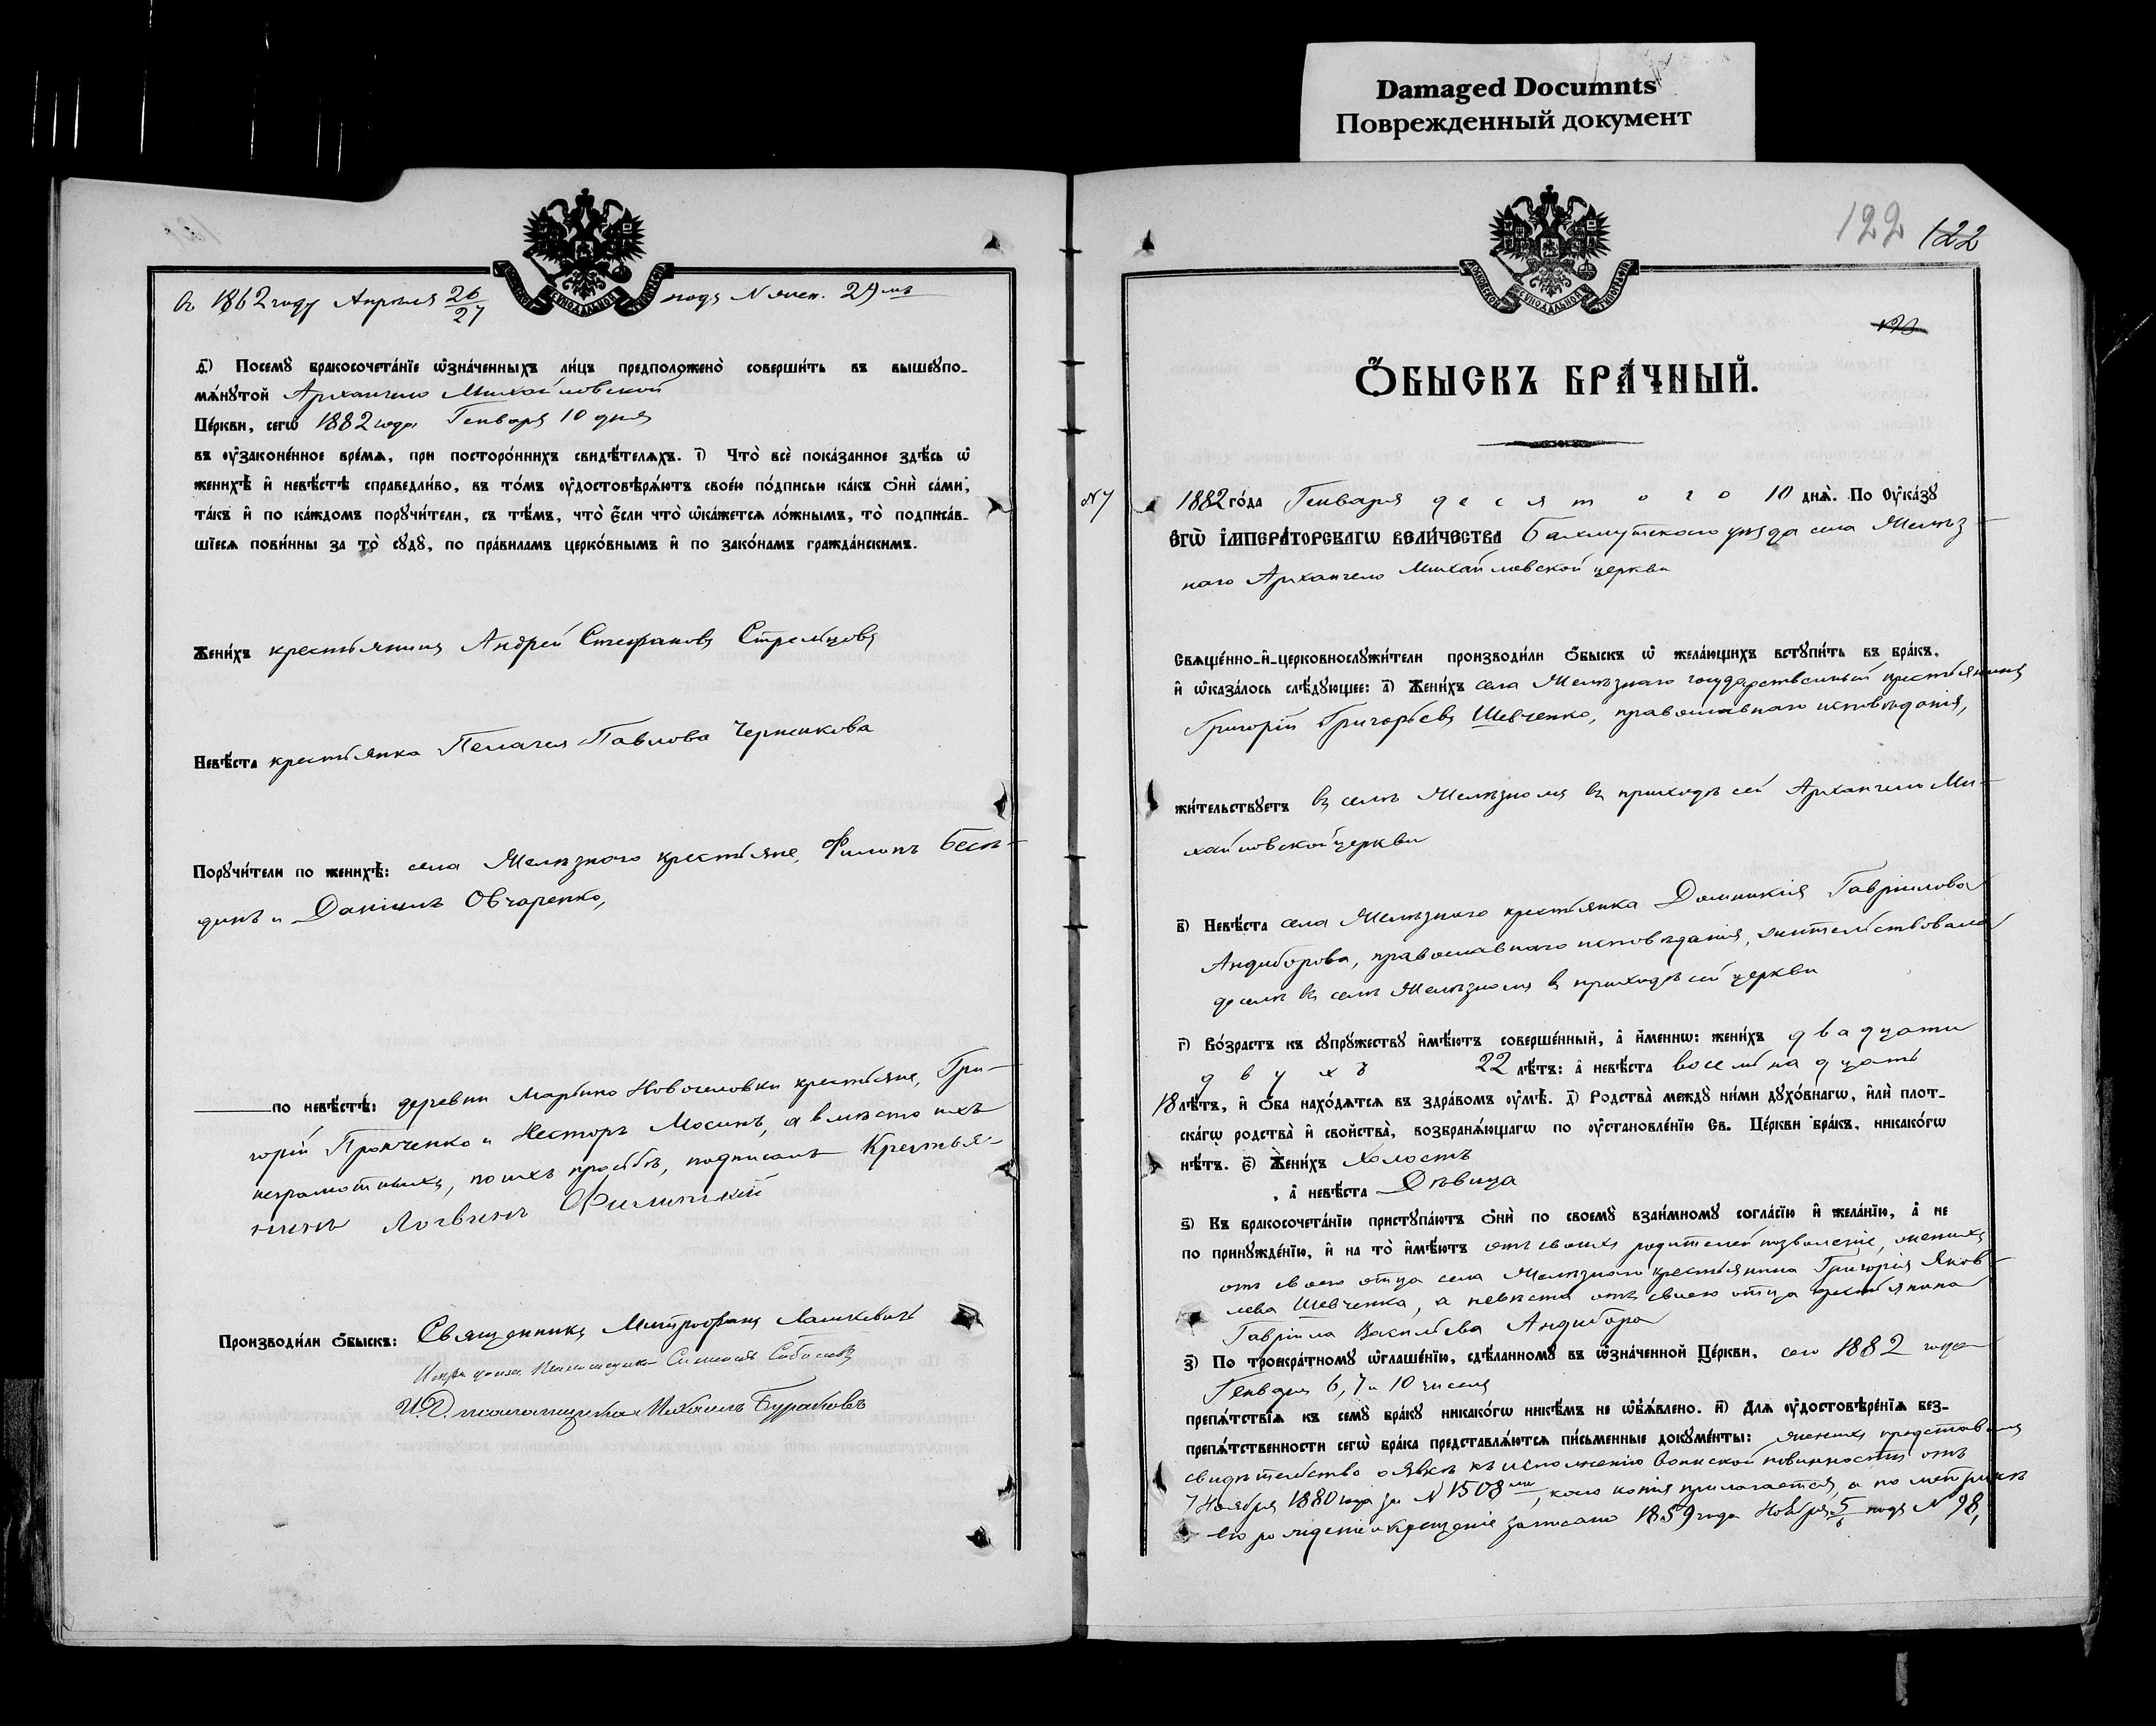 Damaged Documnts
Поврежденный документ
въ 1862 году Апрѣля 26/27 подъ № жен. 29мъ
д҃) Посемꙋ бракосочета́нїе ѡ҆зна́ченныхъ ли́цъ предположено̀ соверши́ть въ вышеꙋпо-
мѧ́нꙋтой Архангело Михайловской
Це́ркви, сегѡ̀ 1882 года Генваря 10 дня
въ ᲂу҆законе́нное вре́мѧ, при посторо́ннихъ свидѣ́телѧхъ. і҃) Что̀ всѐ пока́занное здѣ́сь ѡ҆
женихѣ̀ и҆ невѣ́стѣ справедли́во, въ то́мъ ᲂу҆достовѣрѧ́ютъ свое́ю по́дписью ка́къ ѻ҆нѝ са́ми,
та́къ и҆ по ка́ждомъ порꙋчи́тели, съ тѣ́мъ, что̀ є҆́сли что̀ ѡ҆ка́жетсѧ ло́жнымъ, то̀ подписа́в-
шїесѧ пови́нны за то̀ сꙋдꙋ̀, по пра́виламъ церко́внымъ и҆ по зако́намъ гражда́нскимъ.
Жени́хъ крестьянинъ Андрей Стефановъ Стрельцовъ
Невѣ́ста крестьянка Пелагея Павлова Черникова
Порꙋчи́тели по женихѣ̀: села Желѣзнаго крестьяне, Филипъ Бесѣ-
динъ и Даніилъ Овчаренко,
по невѣ́стѣ: деревни Марьино Новоселовки крестьяне, Гри-
горій Пронченко и Несторъ Мосинъ, а вмѣсто ихъ
неграмотныхъ, по ихъ просьбѣ, подписалъ Крестья-
нинъ Логвинъ
Производи́ли ѻ҆́быскъ: Священникъ Митрофанъ Лашкевичъ
И.Д. псаломщика Михаилъ Бураковъ
122 122
ѺБЫСКЪ БРА́ЧНЫЙ.
№ 7
1882 го́да Генваря десятого 10 днѧ̀. По Оу҆ка́зꙋ
є҆гѡ̀ і҆мпера́торскагѡ вели́чества Бахмутскаго уѣзда села Желѣз-
наго Архангело Михайловской церкви
Свѧще́нно-и҆-церковнослꙋжи́тели производи́ли ѻ҆́быскъ ѡ҆ жела́ющихъ встꙋпи́ть въ бра́къ,
и҆ ѡ҆каза́лось слѣ́дꙋющее: а҃) Жени́хъ села Желѣзнаго государственный крестьянинъ
Григорій Григорьевъ Шевченко, православнаго исповѣданія,
жи́тельствꙋетъ въ селѣ Желѣзномъ въ приходѣ сей Архангело Ми-
хайловской церкви
в҃) Невѣ́ста села Желѣзнаго крестьянка Домникія Гавріилова
Андиборова, православнаго исповѣданія, жительствовала
доселѣ въ селѣ Желѣзномъ въ приходѣ сей церкви
г҃) Во́зрастъ къ сꙋпрꙋ́жествꙋ и҆мѣ́ютъ соверше́нный, а҆ и҆́меннѡ: жени́хъ двадцати
двухъ 22 лѣ́тъ: а҆ невѣ́ста восемьнадцать
18 лѣ́тъ, и҆ ѻ҆́ба нахо́дѧтсѧ въ здра́вомъ ᲂу҆мѣ̀. д҃) Родства̀ междꙋ̀ ни́ми дꙋхо́внагѡ, и҆лѝ плот-
ска́гѡ родства̀ и҆ свойства̀, возбранѧ́ющагѡ по ᲂу҆становле́нїю Св. Це́ркви бра́къ, никако́гѡ
нѣ́тъ. є҃) Жени́хъ холостъ
, а҆ невѣ́ста Дѣвица
ѕ҃) Къ бракосочета́нїю пристꙋпа́ютъ ѻ҆нѝ по своемꙋ̀ взаи́мномꙋ согла́сїю и҆ жела́нїю, а҆ не
по принꙋжде́нїю, и҆ на то̀ и҆мѣ́ютъ отъ своихъ родителей позволеніе, женихъ
отъ своего отца села Желѣзнаго крестьянина Григорія Яков-
лева Шевченка, а невѣста отъ своего отца крестьянина
Гавріила Васильева Андибора
з҃) По троекра́тномꙋ ѡ҆глаше́нїю, сдѣ́ланномꙋ въ ѡ҆зна́ченной Це́ркви, сего 1882 года
Генваря 6, 7 и 10 чиселъ
препѧ́тствїѧ къ семꙋ̀ бра́кꙋ никако́гѡ никѣ́мъ не ѡ҆б̾ѧ́влено. и҃) Длѧ ᲂу҆достовѣре́нїѧ без-
препѧ́тственности сегѡ̀ бра́ка представлѧ́ютсѧ пи́сьменные докꙋме́нты: женихъ представилъ
свидѣтельство о явкѣ къ исполненію воинской повинности отъ
7 Ноября 1880 года за № 1508мъ, коего копія прилагается, а по метрикѣ
его рожденіе и крещеніе записано 1859 года Ноября 5/6 подъ № 98,